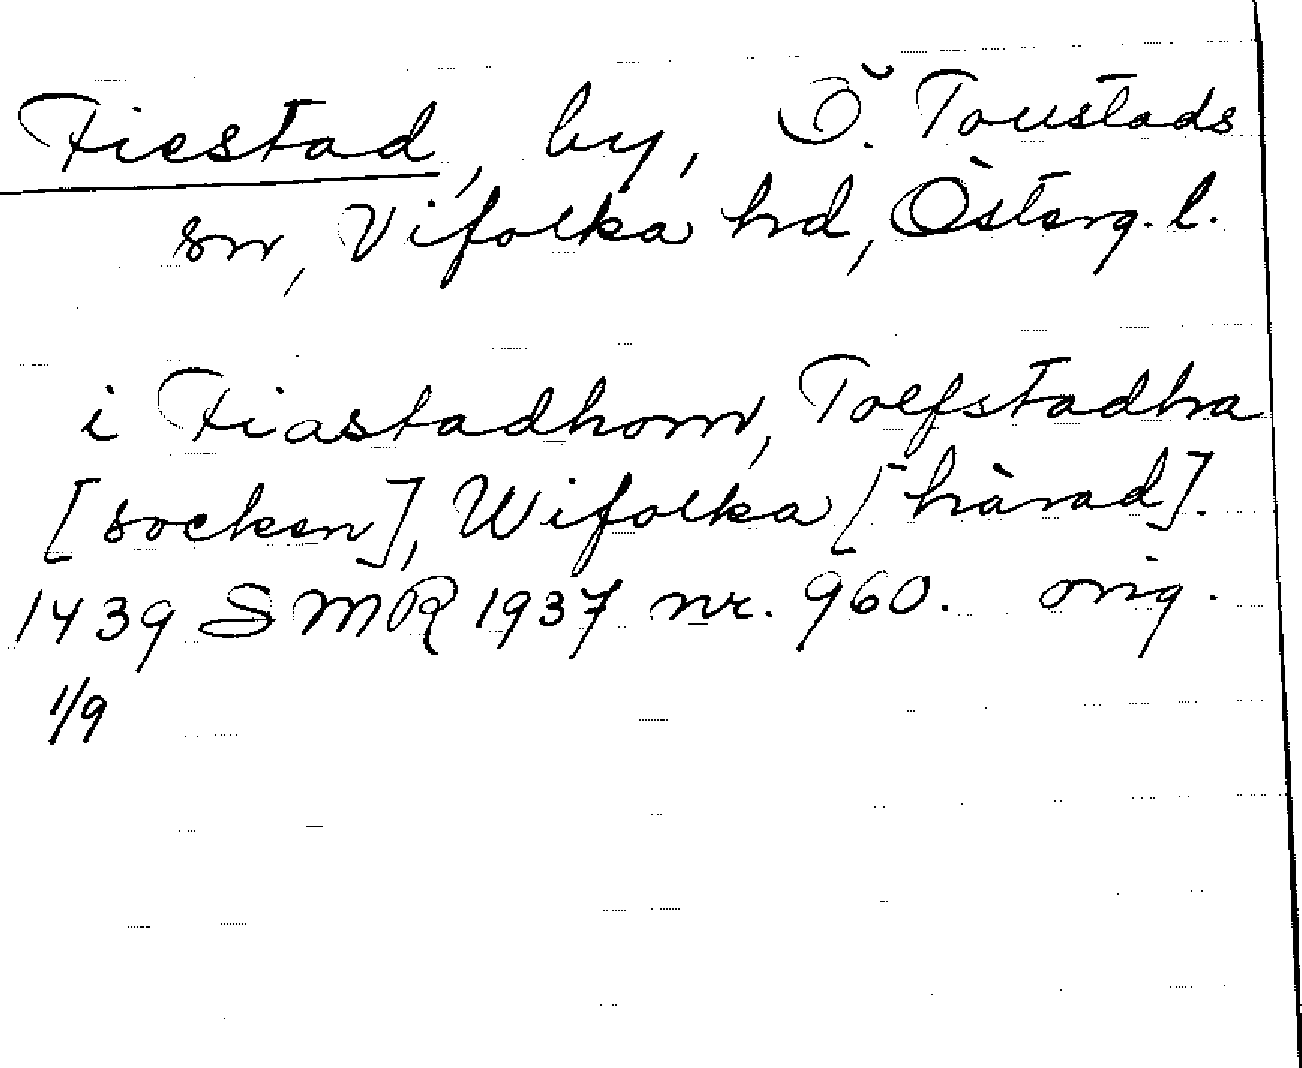 Fiestad, by, Ö. Toustads
sn, Vifolka hd, Österg. l.
i Fiastadhom, Tolfstadha
[socken], Wifolka [härad].
1439 SMR 1937 nr. 960. orig.
1/9